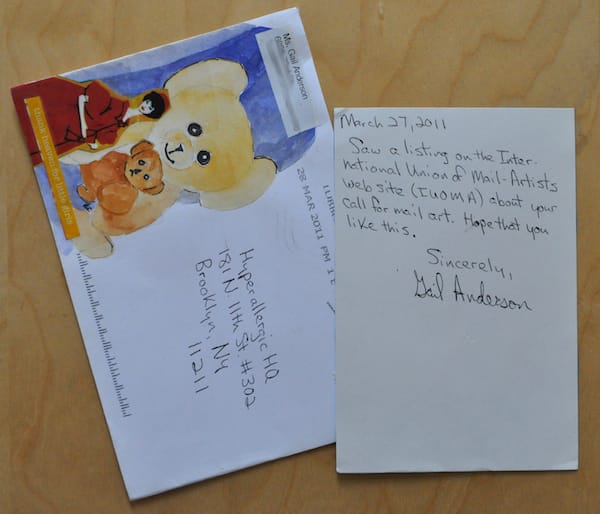 Ms. Gail Anderson
thank heaven for little girls
28 MAR 2011 PM 1
Hyperallergic HQ
181 N. 11th St. #302
Brooklyn, NY
11211
March 27, 2011
Saw a listing on the Inter-
national Union of Mail-Artists
web site (IUOMA) about your
call for mail art. Hope that you
like this.
Sincerely,
Gail Anderson